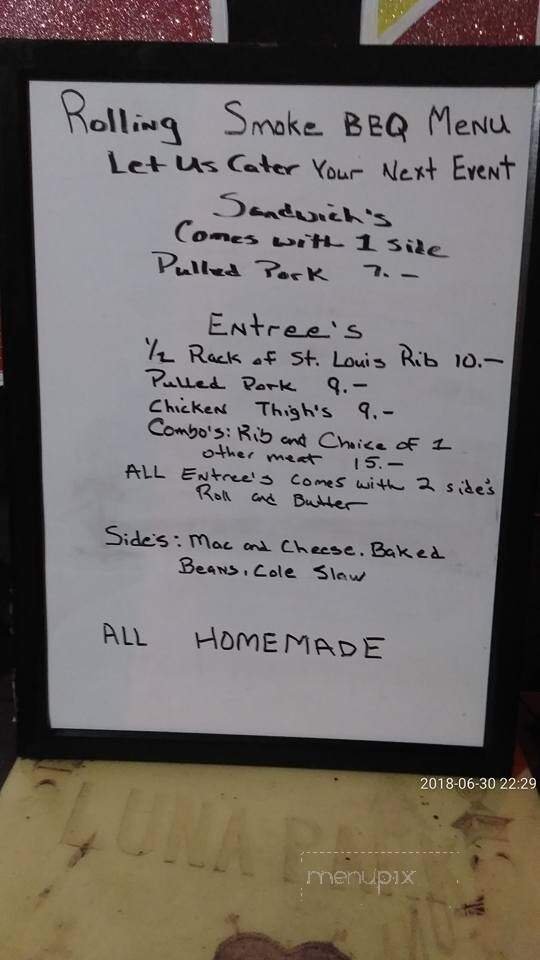 Rolling Smoke BBQ Menu
Let Us Cater Your Next Event
Sandwich's
Comes with 1 Side
Pulled Pork 7.-
Entree's
1/2 Rack of St. Louis Rib 10.-
Pulled Pork 9.-
Chicken Thigh's 9.-
Combo's: Rib and Choice of 1
other meat 15.-
ALL Entree's Comes with 2 side's
Roll and Butter
Side's: Mac and Cheese. Baked
Beans. Cole Slaw
ALL HOMEMADE
2018-06-30 22:29
LUNA
menupix